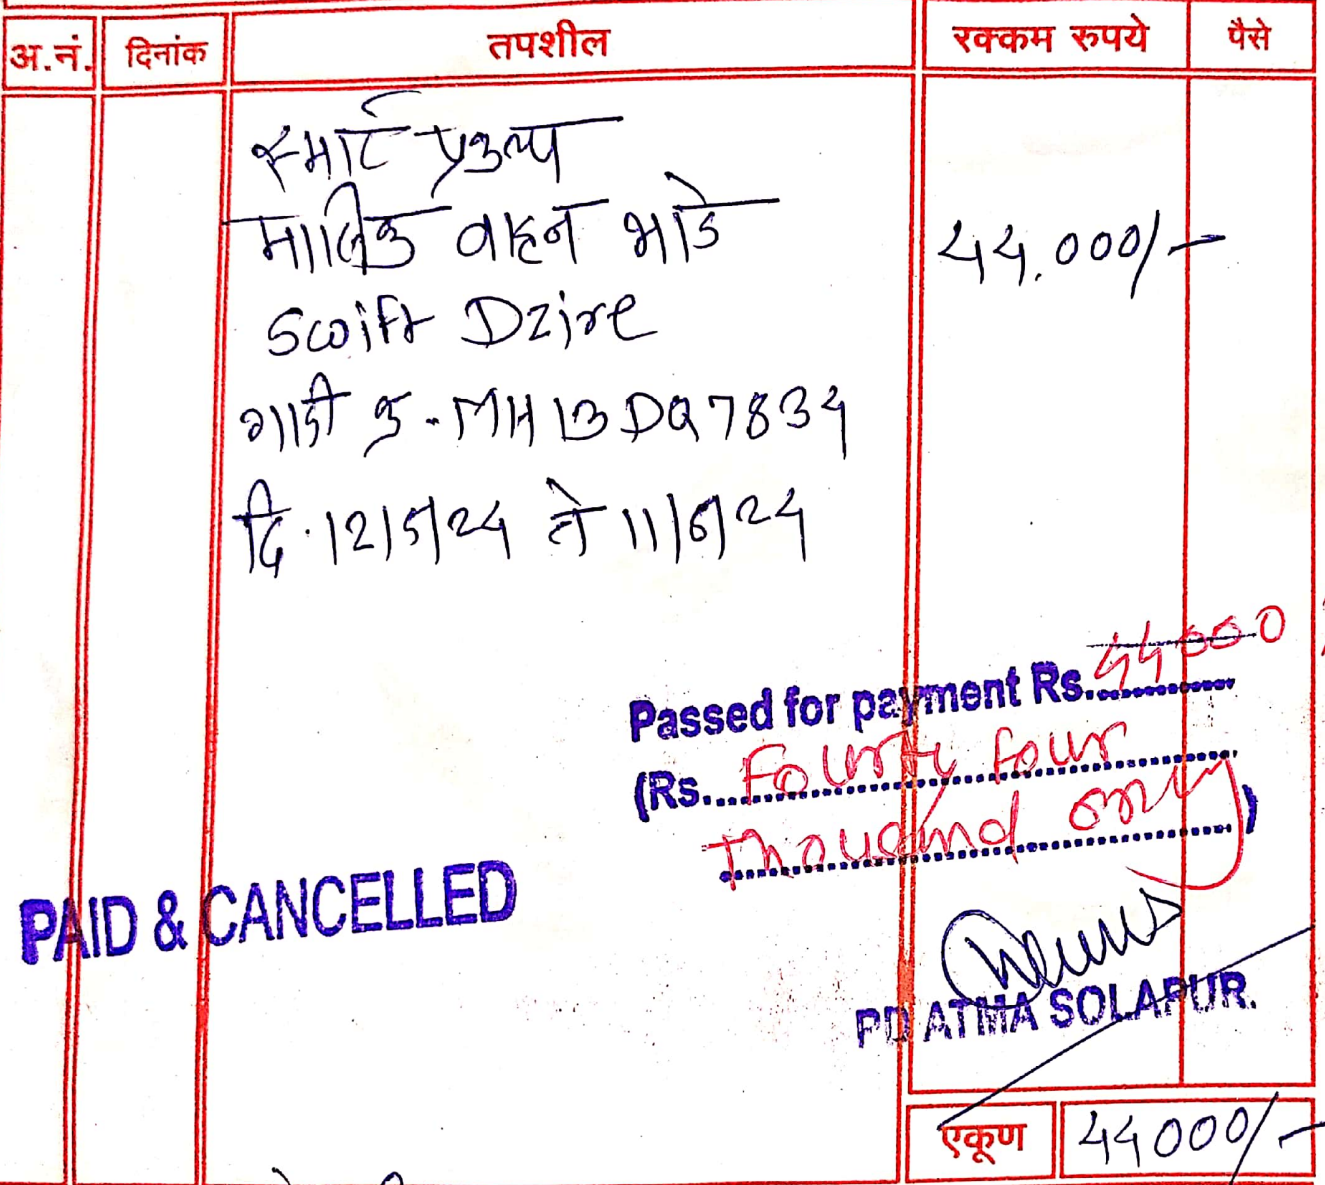 अ.नं. दिनांक तपशील रक्कम रुपये पैसे
स्मार्ट प्रकल्प
मासिक वाहन भाडे 44.000/-
Swift Dzire
गाडी क्र. - MH 13 DQ 7834
दि. 12/5/24 ते 11/6/24
Passed for payment Rs. 44000
(Rs. Fourty four
Thousand only )
PAID & CANCELLED
PD ATMA SOLAPUR.
एकूण 44000/-